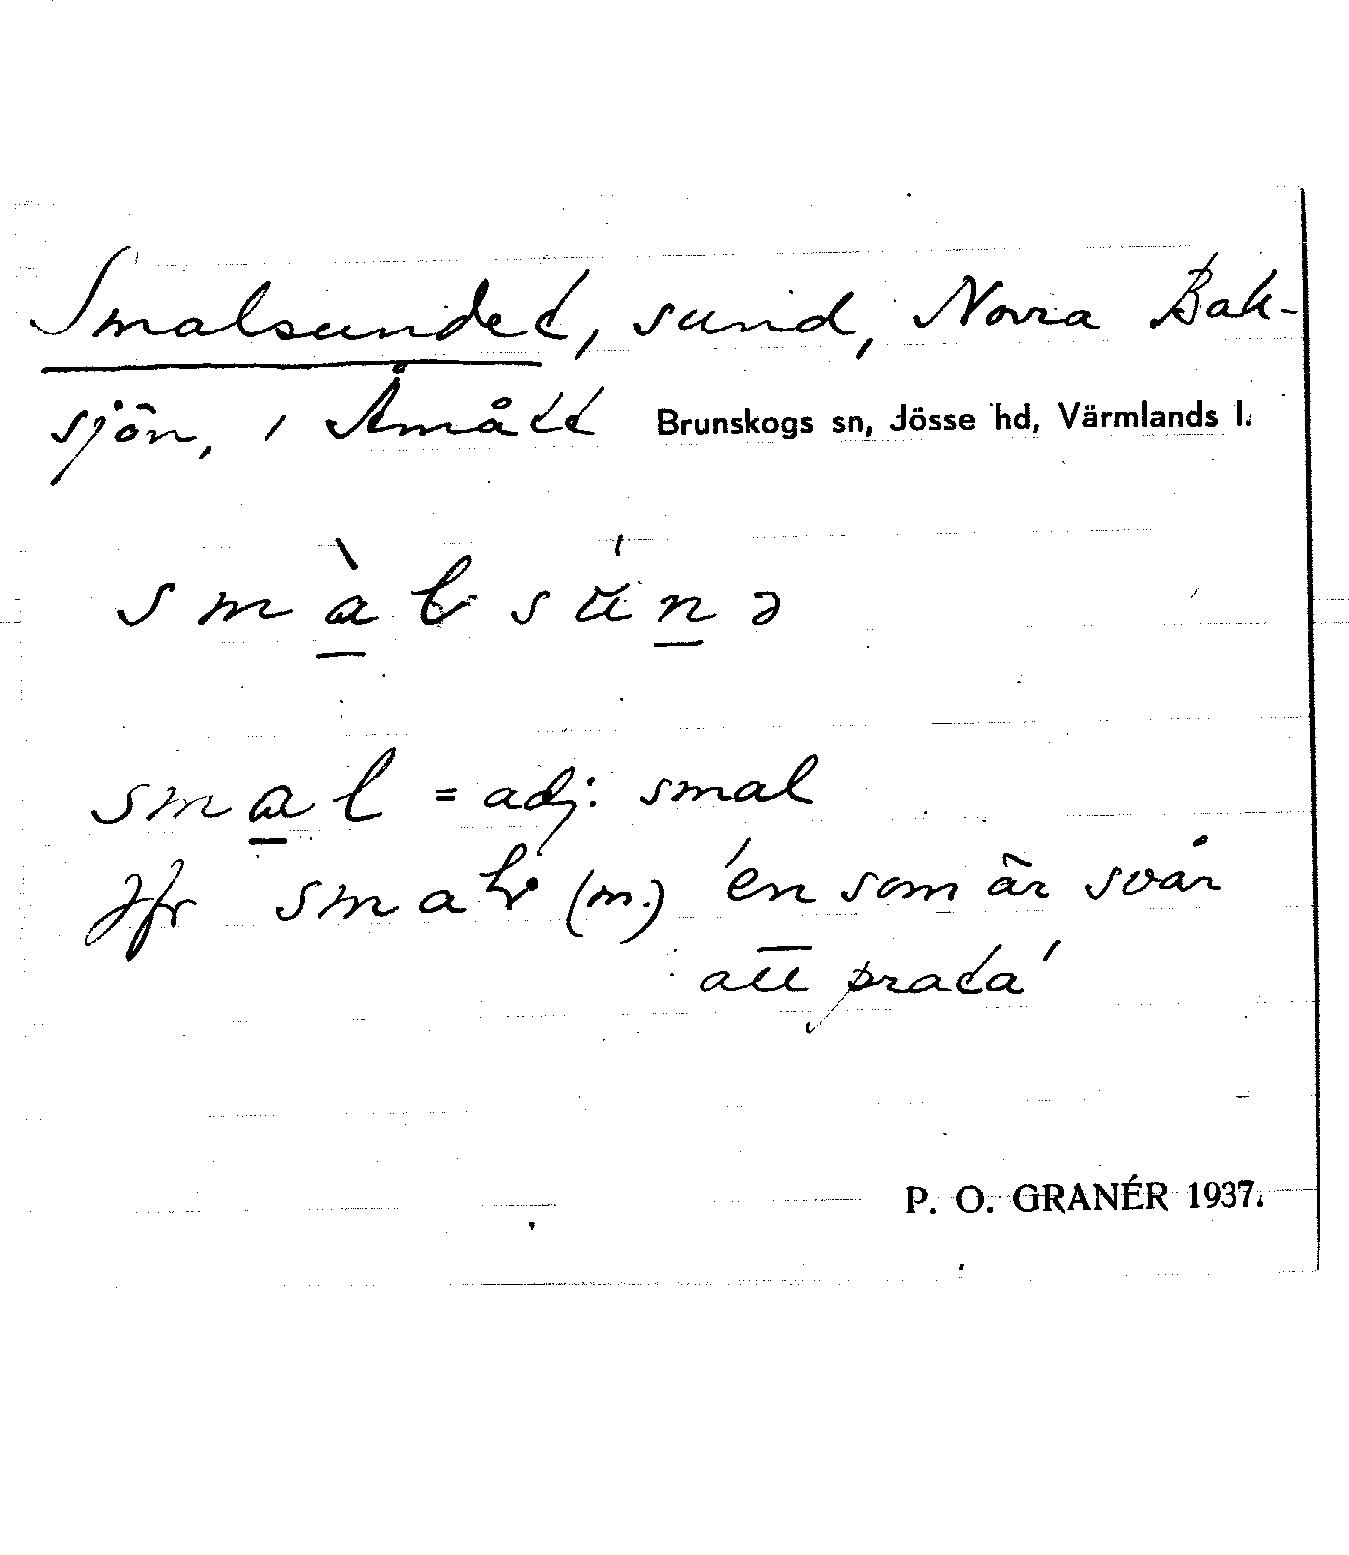 Smalsundet, sund, Norra Bak-
sjön, i Åmått Brunskogs sn, Jösse hd, Värmlands l.
smàlsúnə
smal = adj. smal
Jfr smal (m.) 'en som är svår
att prata'
P. O. GRANÉR 1937.